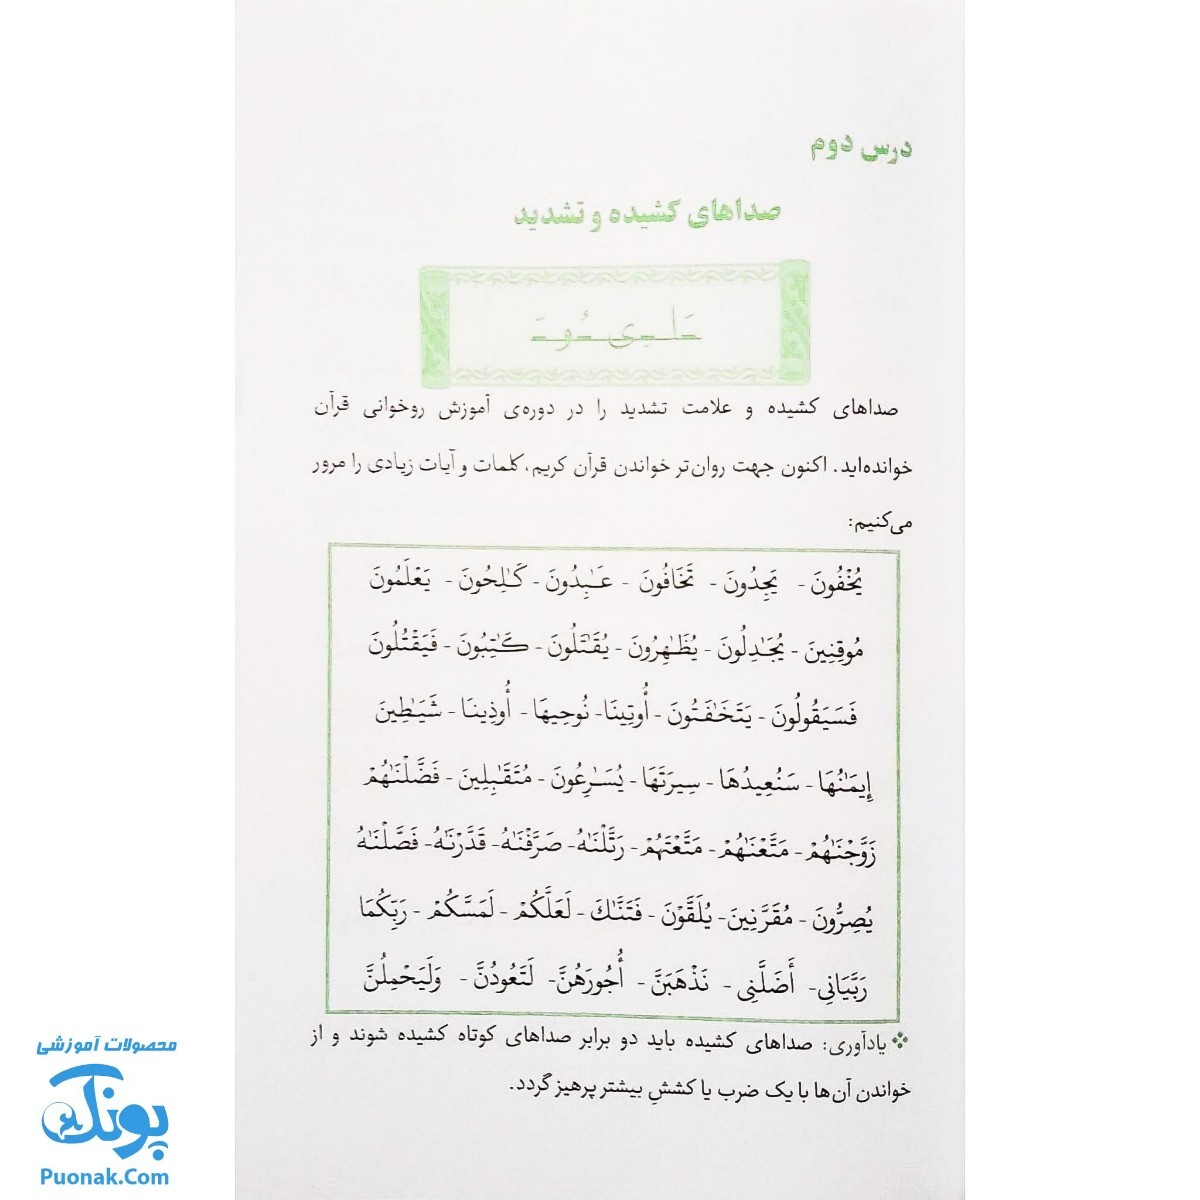 درس دوم
صداهای کشیده و تشدید
ـَا ـِی ـُو ـَ
صداهای کشیده و علامت تشدید را در دوره‌ی آموزش روخوانی قرآن
خوانده‌اید. اکنون جهت روان‌تر خواندن قرآن کریم، کلمات و آیات زیادی را مرور
می‌کنیم:
يُخْفُونَ - يَجِدُونَ - تَخَافُونَ - عَـٰبِدُونَ - كَـٰلِحُونَ - يَعْلَمُونَ
مُوقِنِينَ - يُجَـٰدِلُونَ - يُظَـٰهِرُونَ - يُقَـٰتَلُونَ - كَـٰتِبُونَ - فَيَقْتُلُونَ
فَسَيَقُولُونَ - يَتَخَـٰفَتُونَ - أُوتِينَا - نُوحِيهَا - أُوذِينَا - شَيَـٰطِينَ
إِيمَـٰنُهَا - سَنُعِيدُهَا - سِيرَتَهَا - يُسَـٰرِعُونَ - مُتَقَـٰبِلِينَ - فَضَّلْنَـٰهُمْ
زَوَّجْنَـٰهُمْ - مَتَّعْنَـٰهُمْ - مَتَّعْتَهُمْ - رَتَّلْنَـٰهُ - صَرَّفْنَـٰهُ - قَدَّرْنَـٰهُ - فَصَّلْنَـٰهُ
يُصِرُّونَ - مُقَرَّنِينَ - يُلَقَّوْنَ - فَتَنَّـٰكَ - لَعَلَّكُمْ - لَمَسَّكُمْ - رَبِّكُمَا
رَبَّيَانِي - أَضَلَّنِي - نَذْهَبَنَّ - أُجُورَهُنَّ - لَتَعُودُنَّ - وَلَيَحْمِلُنَّ
یادآوری: صداهای کشیده باید دو برابر صداهای کوتاه کشیده شوند و از
خواندن آن‌ها با یک ضرب یا کششِ بیشتر پرهیز گردد.
محصولات آموزشی
پونک
Puonak.Com